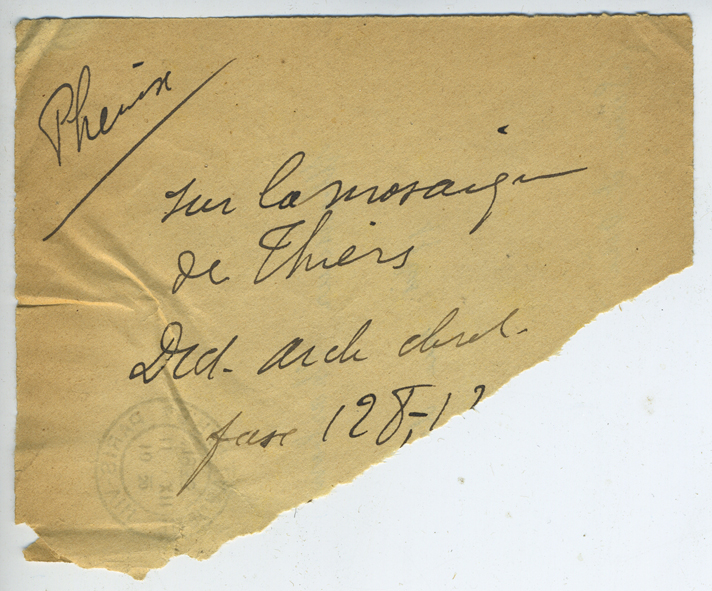 Phenix
sur la mosaique
de Thiers
Dict. arch chret.
fasc 128,12